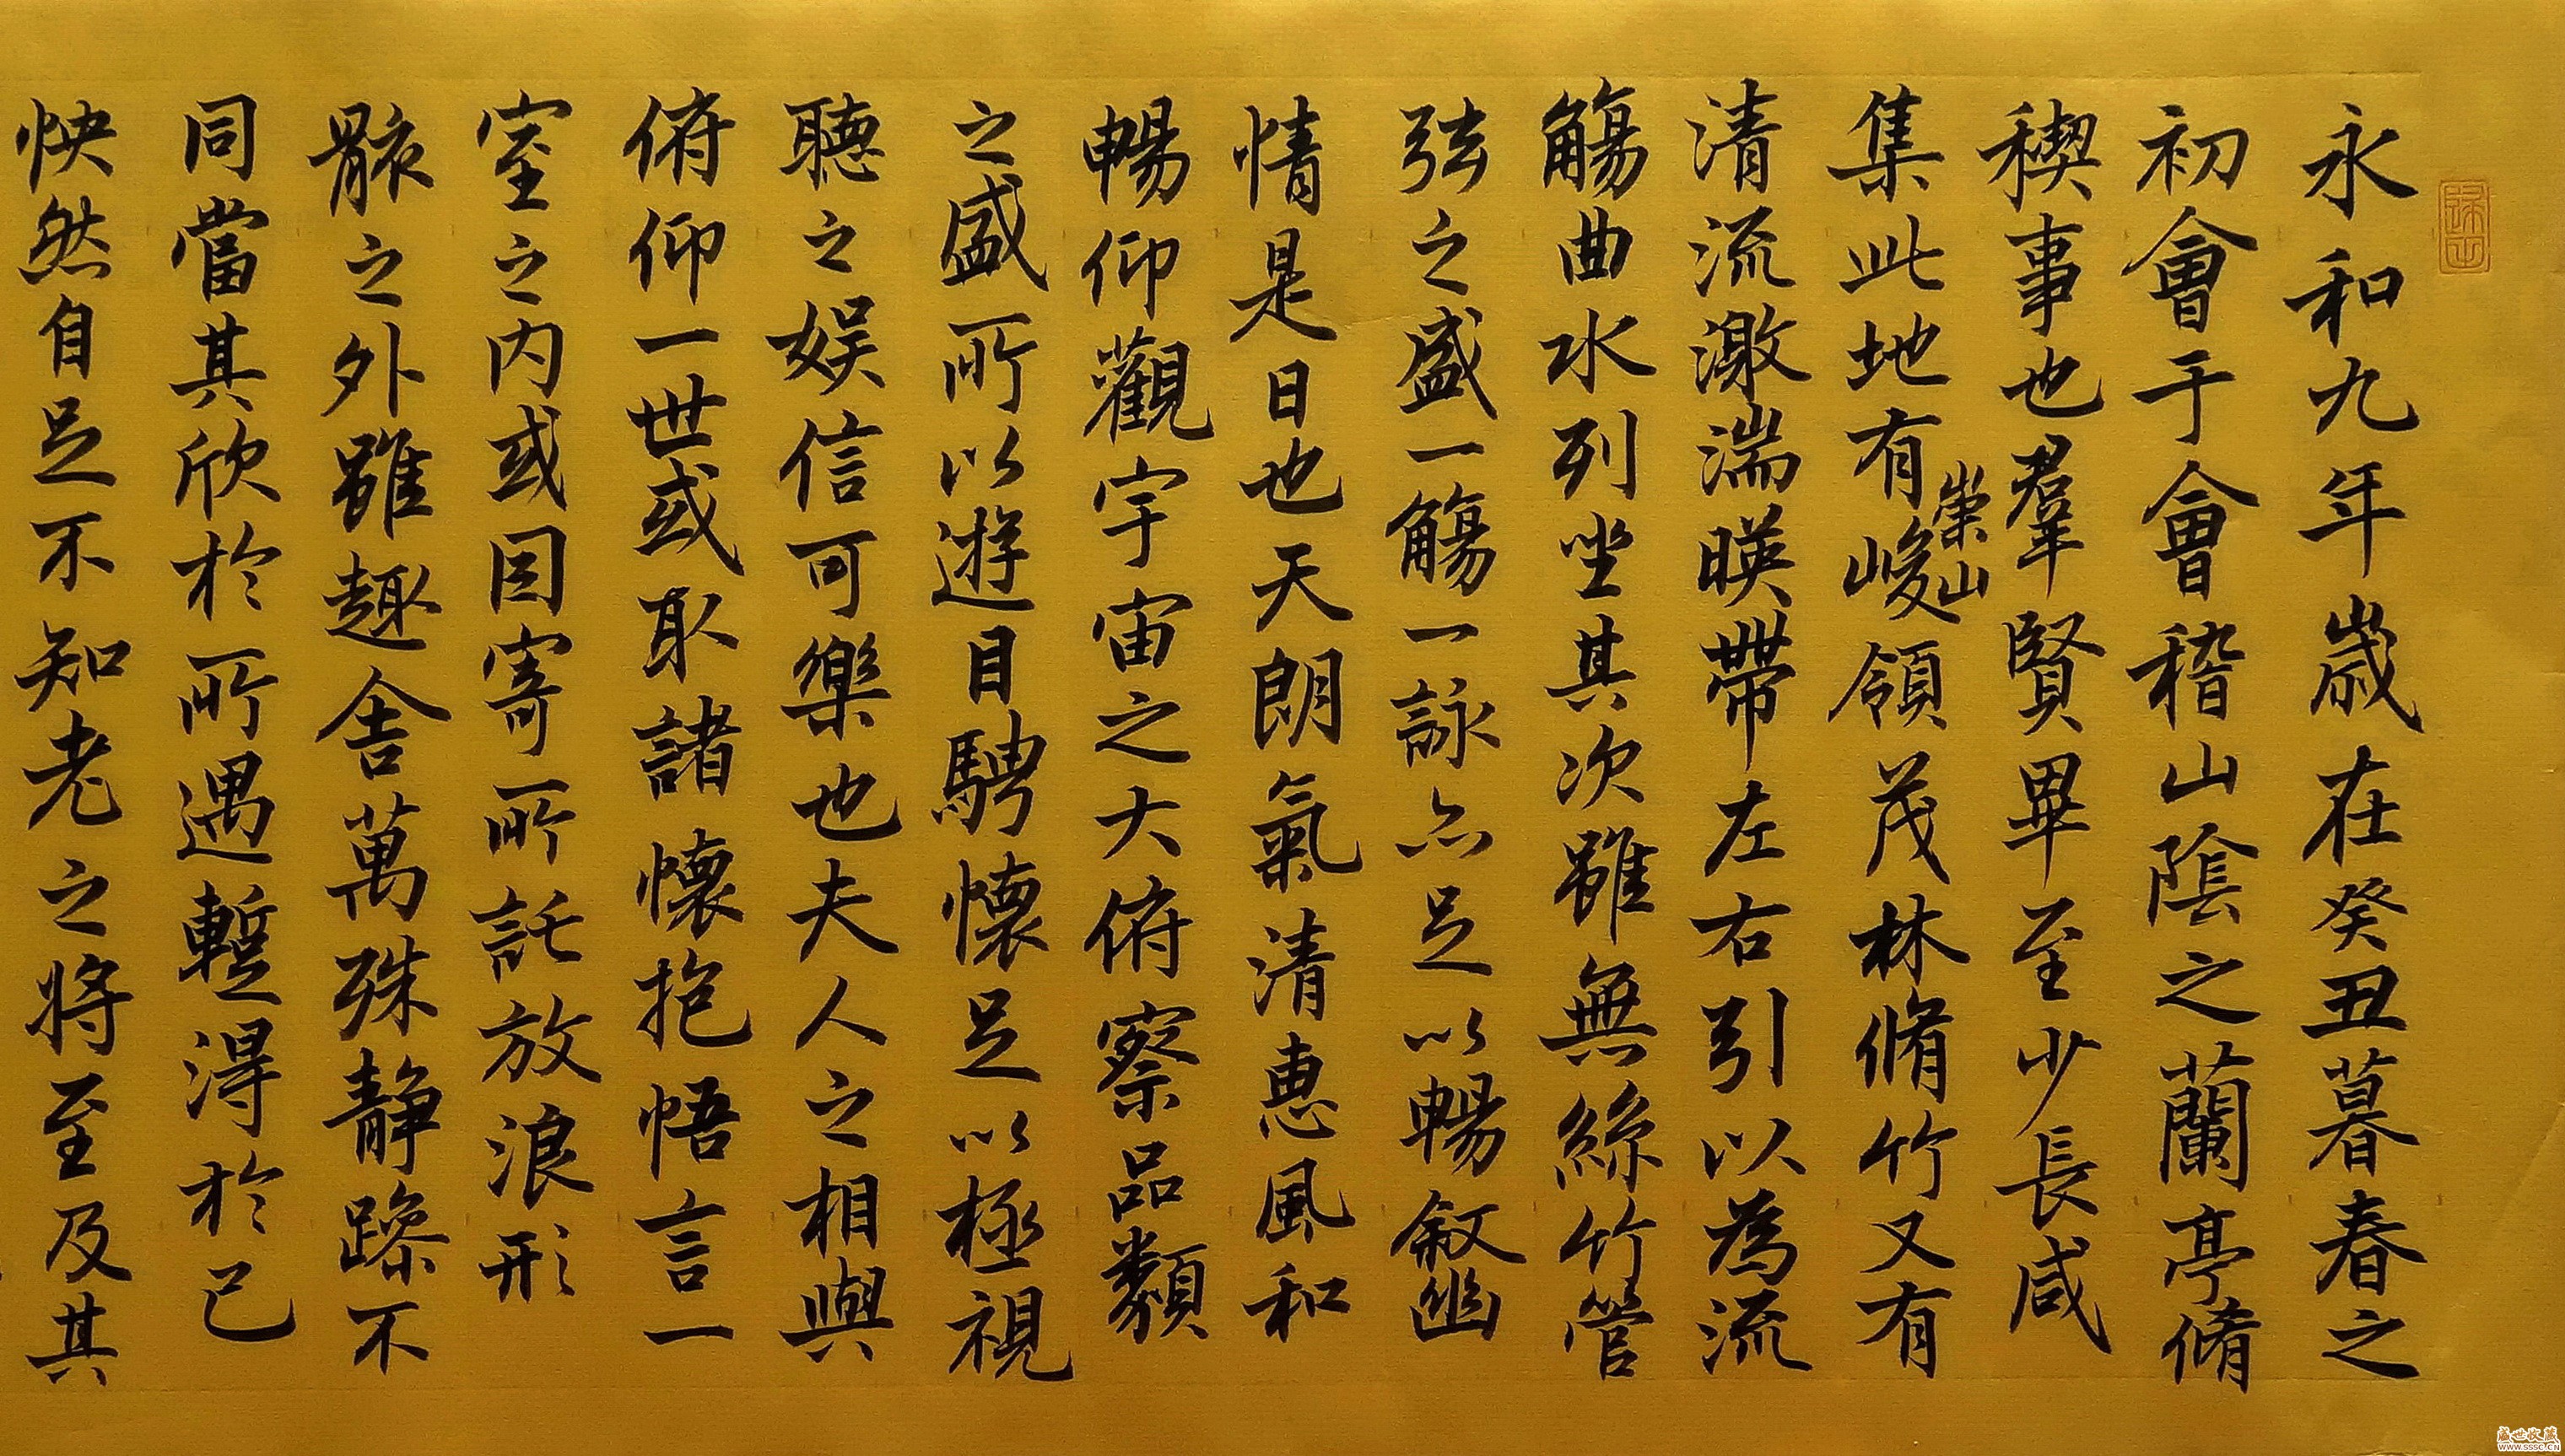 永和九年歲在癸丑暮春之
初會于會稽山陰之蘭亭脩
稧事也羣賢畢至少長咸
集此地有崇山峻領茂林脩竹又有
清流激湍暎帶左右引以為流
觴曲水列坐其次雖無絲竹管
弦之盛一觴一詠亦足以暢敘幽
情是日也天朗氣清惠風和
暢仰觀宇宙之大俯察品類
之盛所以遊目騁懷足以極視
聽之娛信可樂也夫人之相與
俯仰一世或取諸懷抱悟言一
室之內或因寄所託放浪形
骸之外雖趣舍萬殊静躁不
同當其欣於所遇暫得於己
快然自足不知老之將至及其
盛世收藏
www.sssc.cn